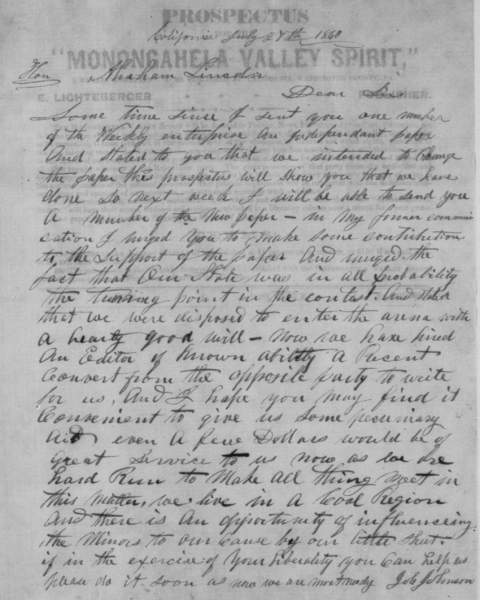 PROSPECTUS
California July 27th 1860
"MONONGAHELA VALLEY SPIRIT,"
Hon Abraham Lincoln
E. LIGHTEBERGER
Dear Sir
Some time since I sent you one number
of the Weekly enterprise An independant paper
And stated to you that we intended to change
the paper this prospectus will show you that we have
done so next week I will be able to send you
A number of the new paper – in my former commun
ication I urged you to make some contribution
to the support of the paper And urged the
fact that Our State was in all probability
the turning point in the contest. And stated
that we were disposed to enter the arena with
a hearty good will – Now we have hired
An Editor of Known ability A Recent
Convert from the opposite party to write
for us, And I hope you may find it
Convenient to give us some pecuniary
Aid even A few Dollars would be of
great Service to us now as we are
hard Run to Make all things meet in
this matter, we live in A Coal Region
And there is An opportunity of influenceing
the Minors to our Cause by our little Sheet.
if in the exercise of Your liberality you Can help us
please do it soon as now we are most needy Job Johnson